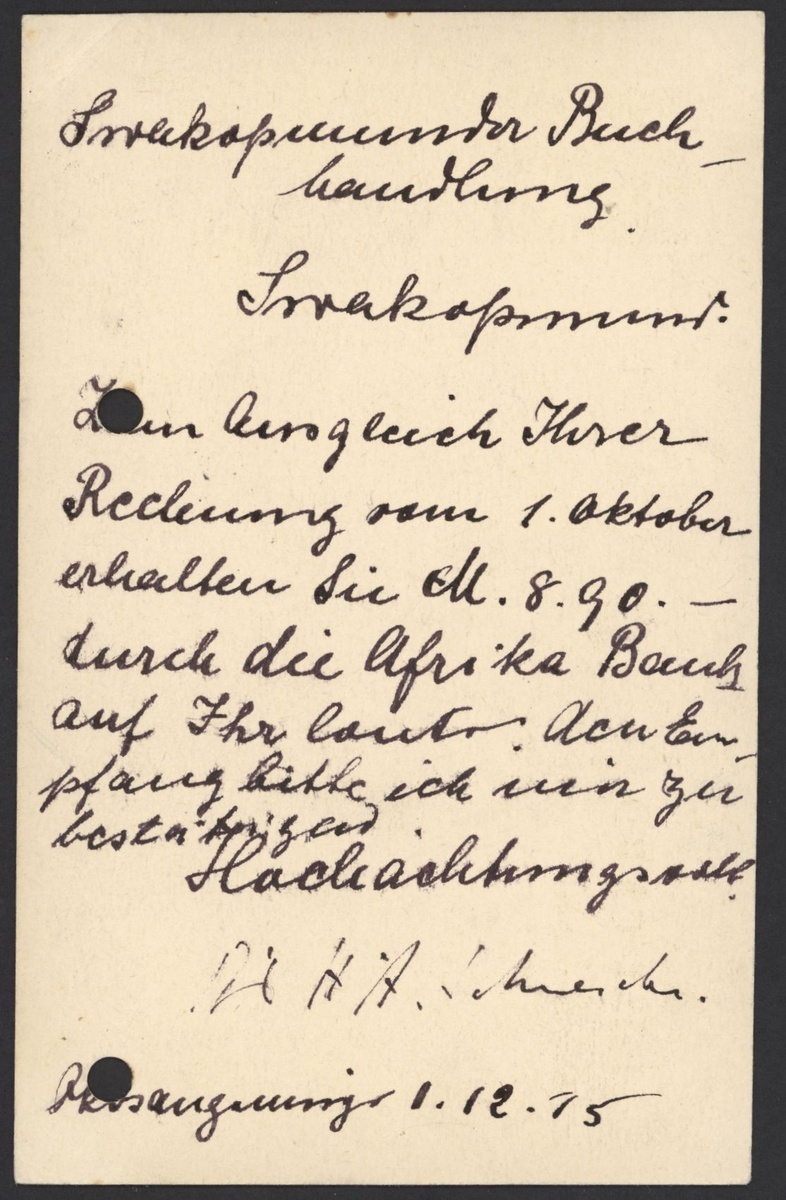 Swakopmunder Buch-
handlung.
Swakopmund.
Zum Ausgleich Ihrer
Rechnung vom 1. Oktober
erhalten Sie M. 8.90.—
durch die Afrika Bank
auf Ihr Conto. Den Em-
pfang bitte ich mir zu
bestätigen
Hochachtungsvoll.
H A
1.12.15